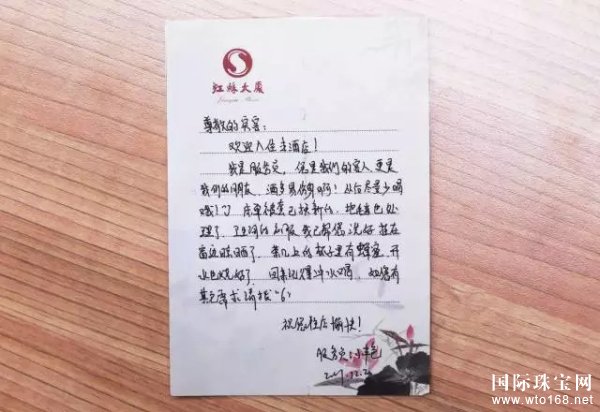 虹县大厦
尊敬的宾客：
欢迎入住本酒店！
我是服务员，您是我们的家人更是
我们的朋友，酒多易伤身啊！以后尽量少喝
哦！床单被套已换新的，地毯也处
理了，卫生间的衣服我已帮您洗好挂在
窗边晾晒了，茶几上的杯子里有蜂蜜，开
水已烧好了，回来记得冲水喝，如您有
其它需求请拨“6”
祝您住店愉快！
服务员：小
国际珠宝网
www.wto168.net